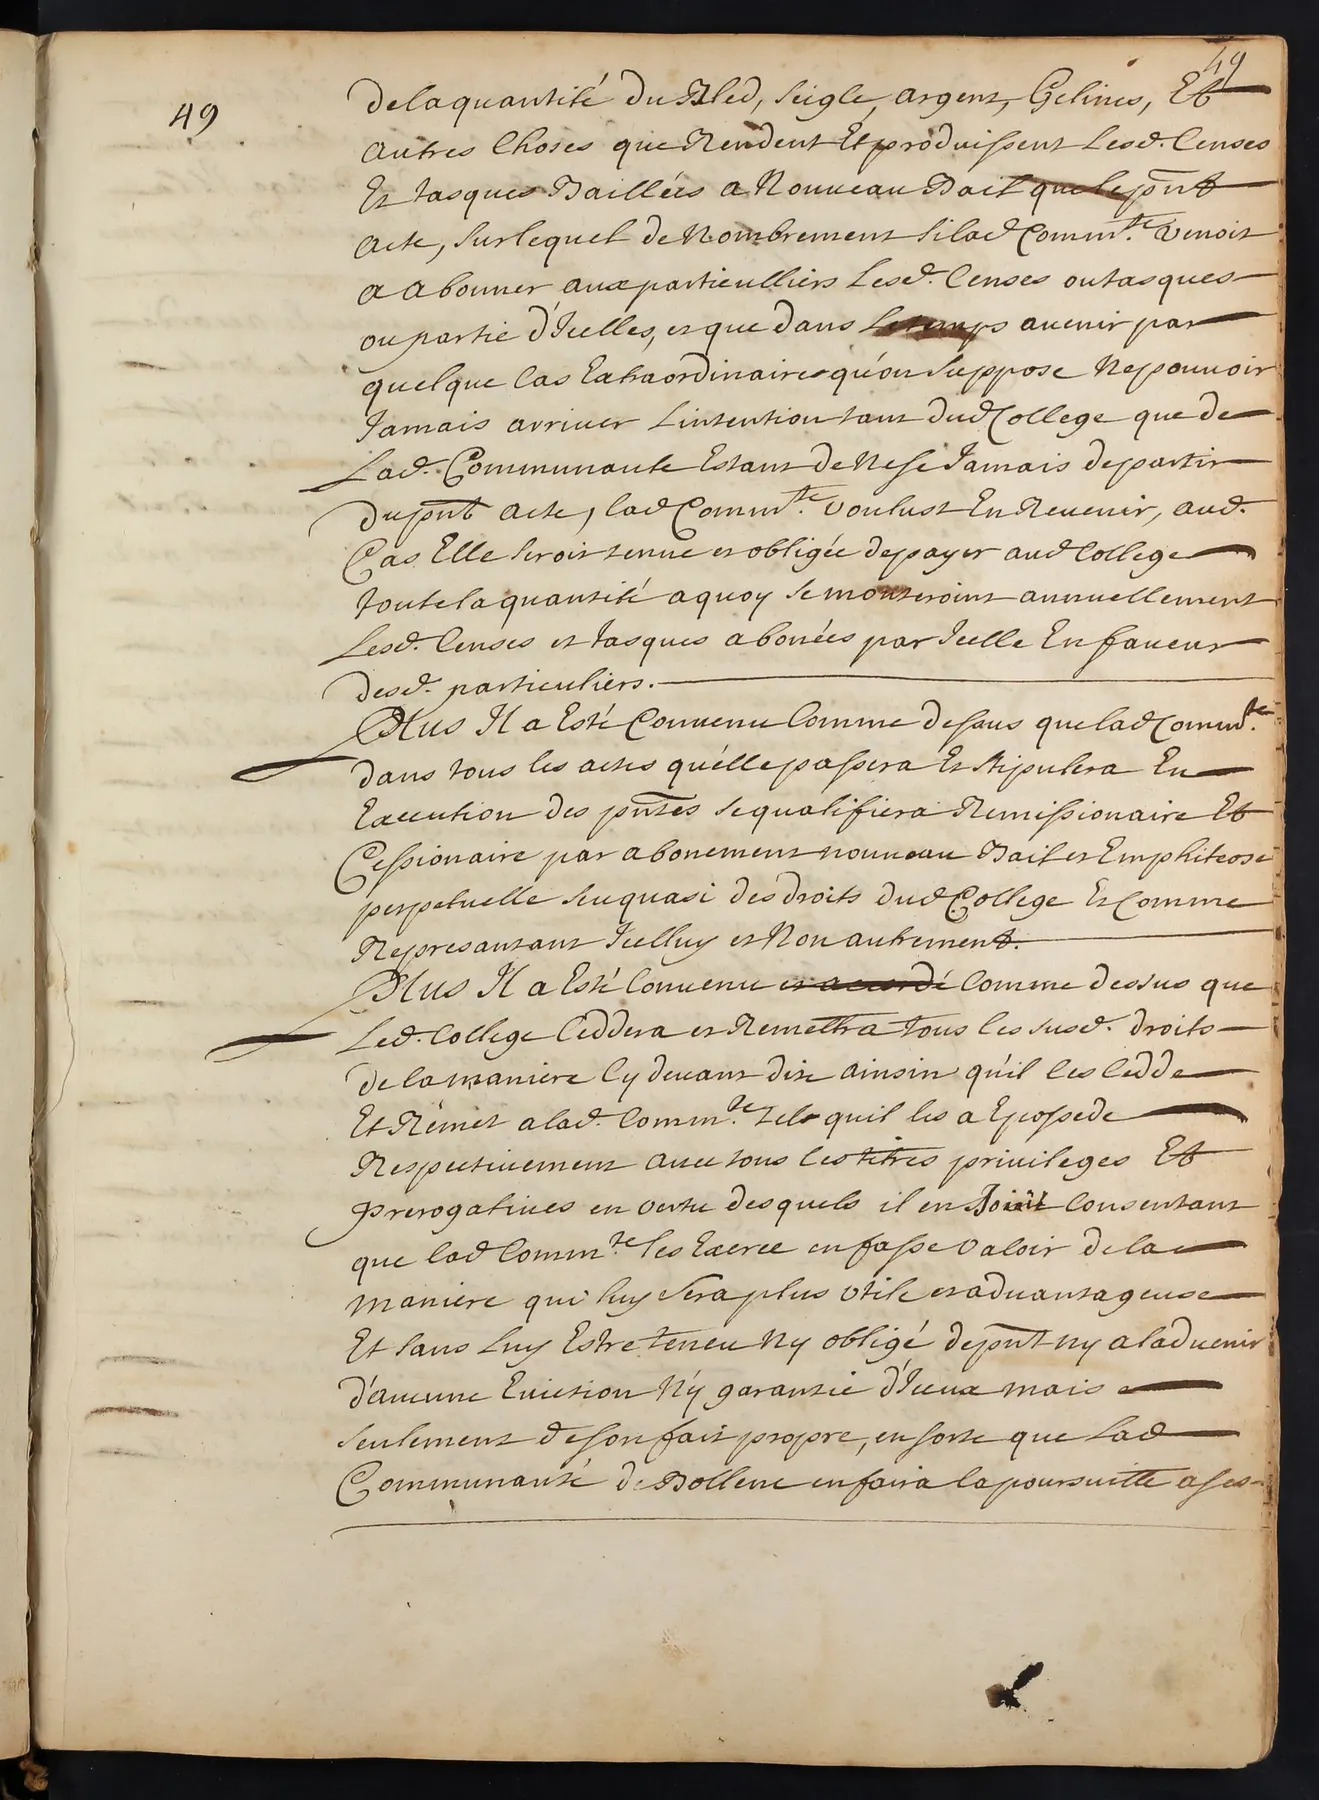 49
49
de la quantité du Bled, seigle, argent, Gelines, Et
autres Choses que Rendent Et produissent Lesd. Censes
Et tasques Baillées a Nouveau Bail que le pnt
acte, sur lequel deNombrement si lad Commté. Venoit
a abonner aux particulliers Lesd. Censes ou tasques
ou partie d'Icelles, et que dans le temps avenir par
quelque Cas Extraordinaire qu'on suppose Ne pouvoir
Jamais arriver L'intention tant dud College que de
Lad. Communaute Estant de Ne se Jamais departir
du pnt acte, lad Commté. voulust En Revenir, aud.
Cas Elle seroit tenue et obligée de payer aud College
toute la quantité a quoy se monteroint annuellement
Lesd. Censes et tasques abonées par Icelle En faveur
desd. particuliers.
Plus Il a Esté Convenu Comme dessus que lad Commté.
dans tous les actes qu'elle passera Et stipulera En
Execution des pntes se qualifiera Remissionaire Et
Cessionaire par abonement nouveau Bail et Emphiteose
perpetuelle seu quasi des droits dud College Et Comme
Represantant Icelluy et Non autrement.
Plus Il a Esté Convenu et acordé Comme dessus que
Led. College Ceddera et Remettra tous les susd. droits
de la maniere Cy devant dite ainsin qu'il les Cedde
Et Remet a lad. Commté. tels quil les a Et possede
Respectivement avec tous les titres privileges Et
prerogatives en vertu desquels il en Joüit Consentant
que lad Commté. les Exerce en fasse valoir de la
maniere qui luy sera plus utile et advantageuse
Et sans luy Estre teneu Ny obligé de pnt ny a ladvenir
d'aucune Eviction N'y garantie d'Iceux mais
seulement de son fait propre, en sorte que Lad
Communauté de Bollene en faira la poursuitte a ses